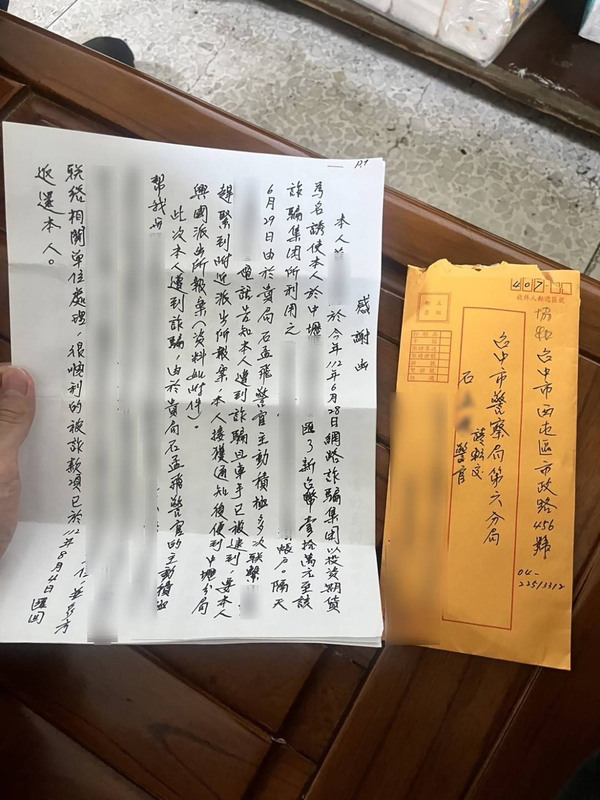 P.1
感謝函
本人 於今年112年6月28日網路詐騙集團以投資期貨
為名誘使本人於中壢 匯了新台幣壹拾萬元至該
詐騙集團所利用之 帳戶。隔天
6月29日由於貴局石孟飛警官主動積極多次聯繫
電話告知本人遭到詐騙且車手已被逮到,要本人
趕緊到附近派出所報案,本人接獲通知後便到中壢分局
興國派出所報案(資料如附件)。
此次本人遭到詐騙,由於貴局石孟飛警官的主動積極
幫我
聯絡相關單位處理,很順利的被詐款項已於112年8月4日匯回
返還本人。
407-
收件人郵遞區號
台中市西屯區市政路456號
04-22513312
台中市警察局第六分局
請轉交
石 警官